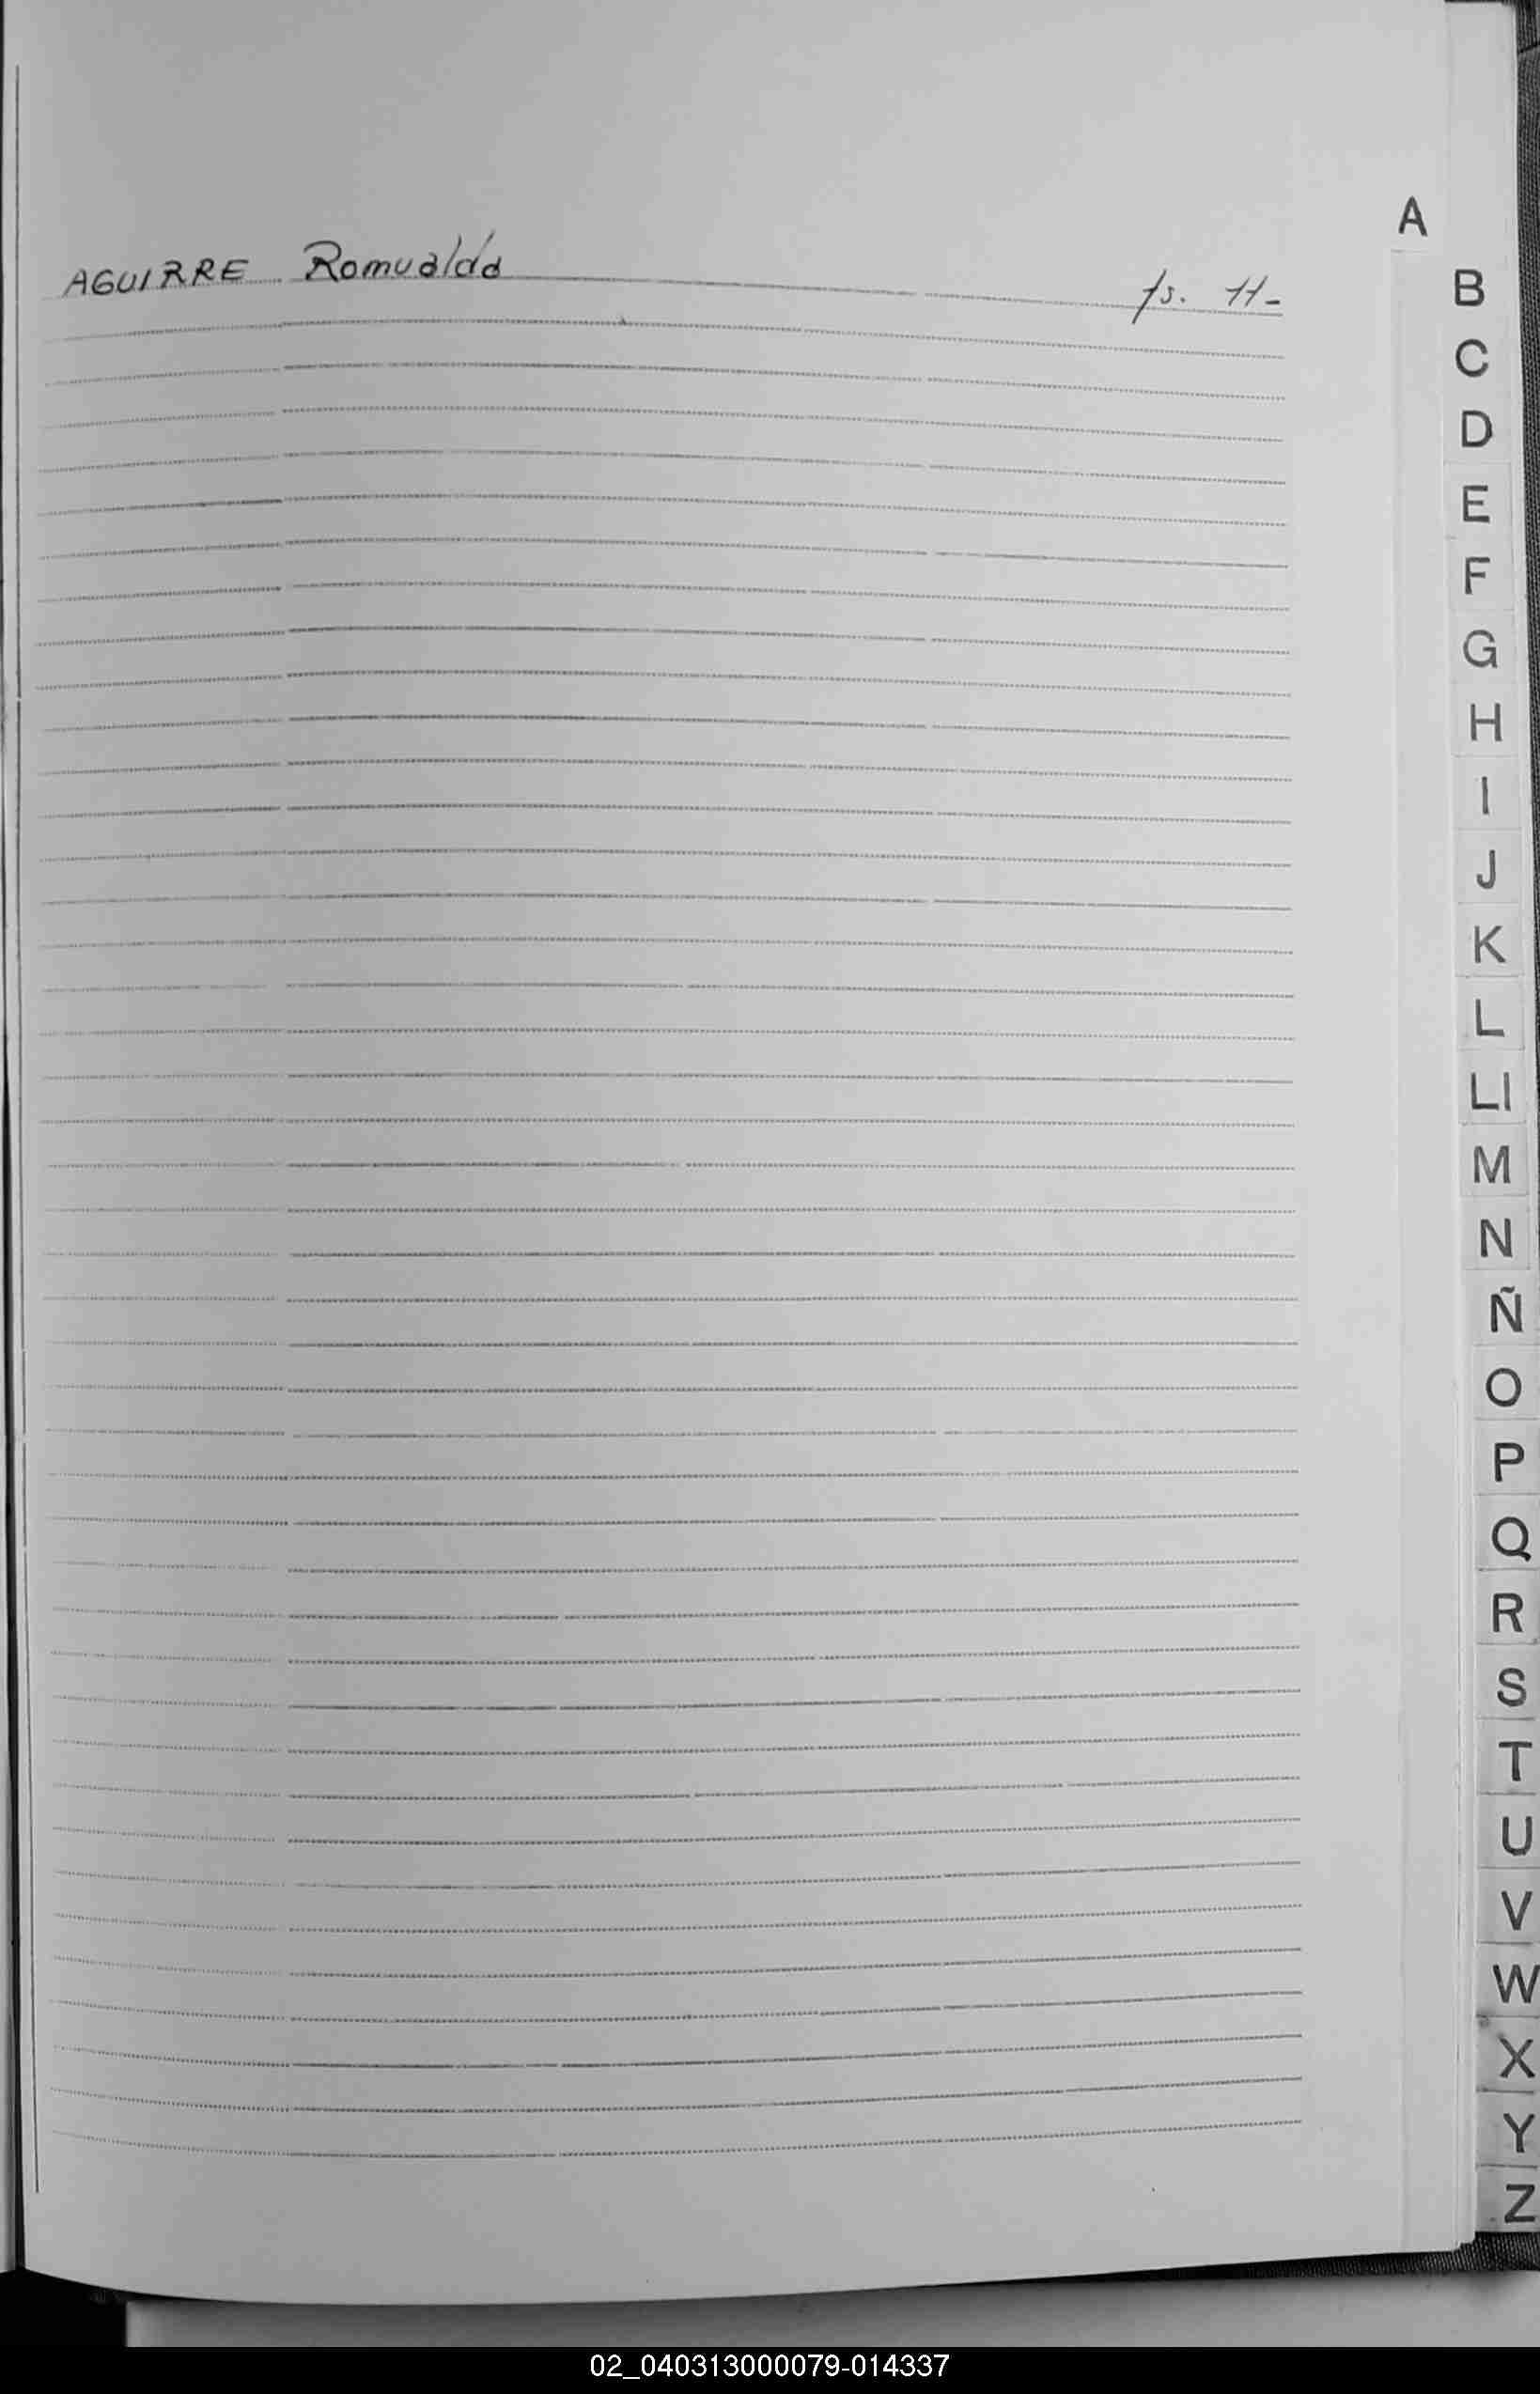 A
AGUIRRE Romualdo fs. 11-
B
C
D
E
F
G
H
I
J
K
L
Ll
M
N
Ñ
O
P
Q
R
S
T
U
V
W
X
Y
Z
02_040313000079-014337